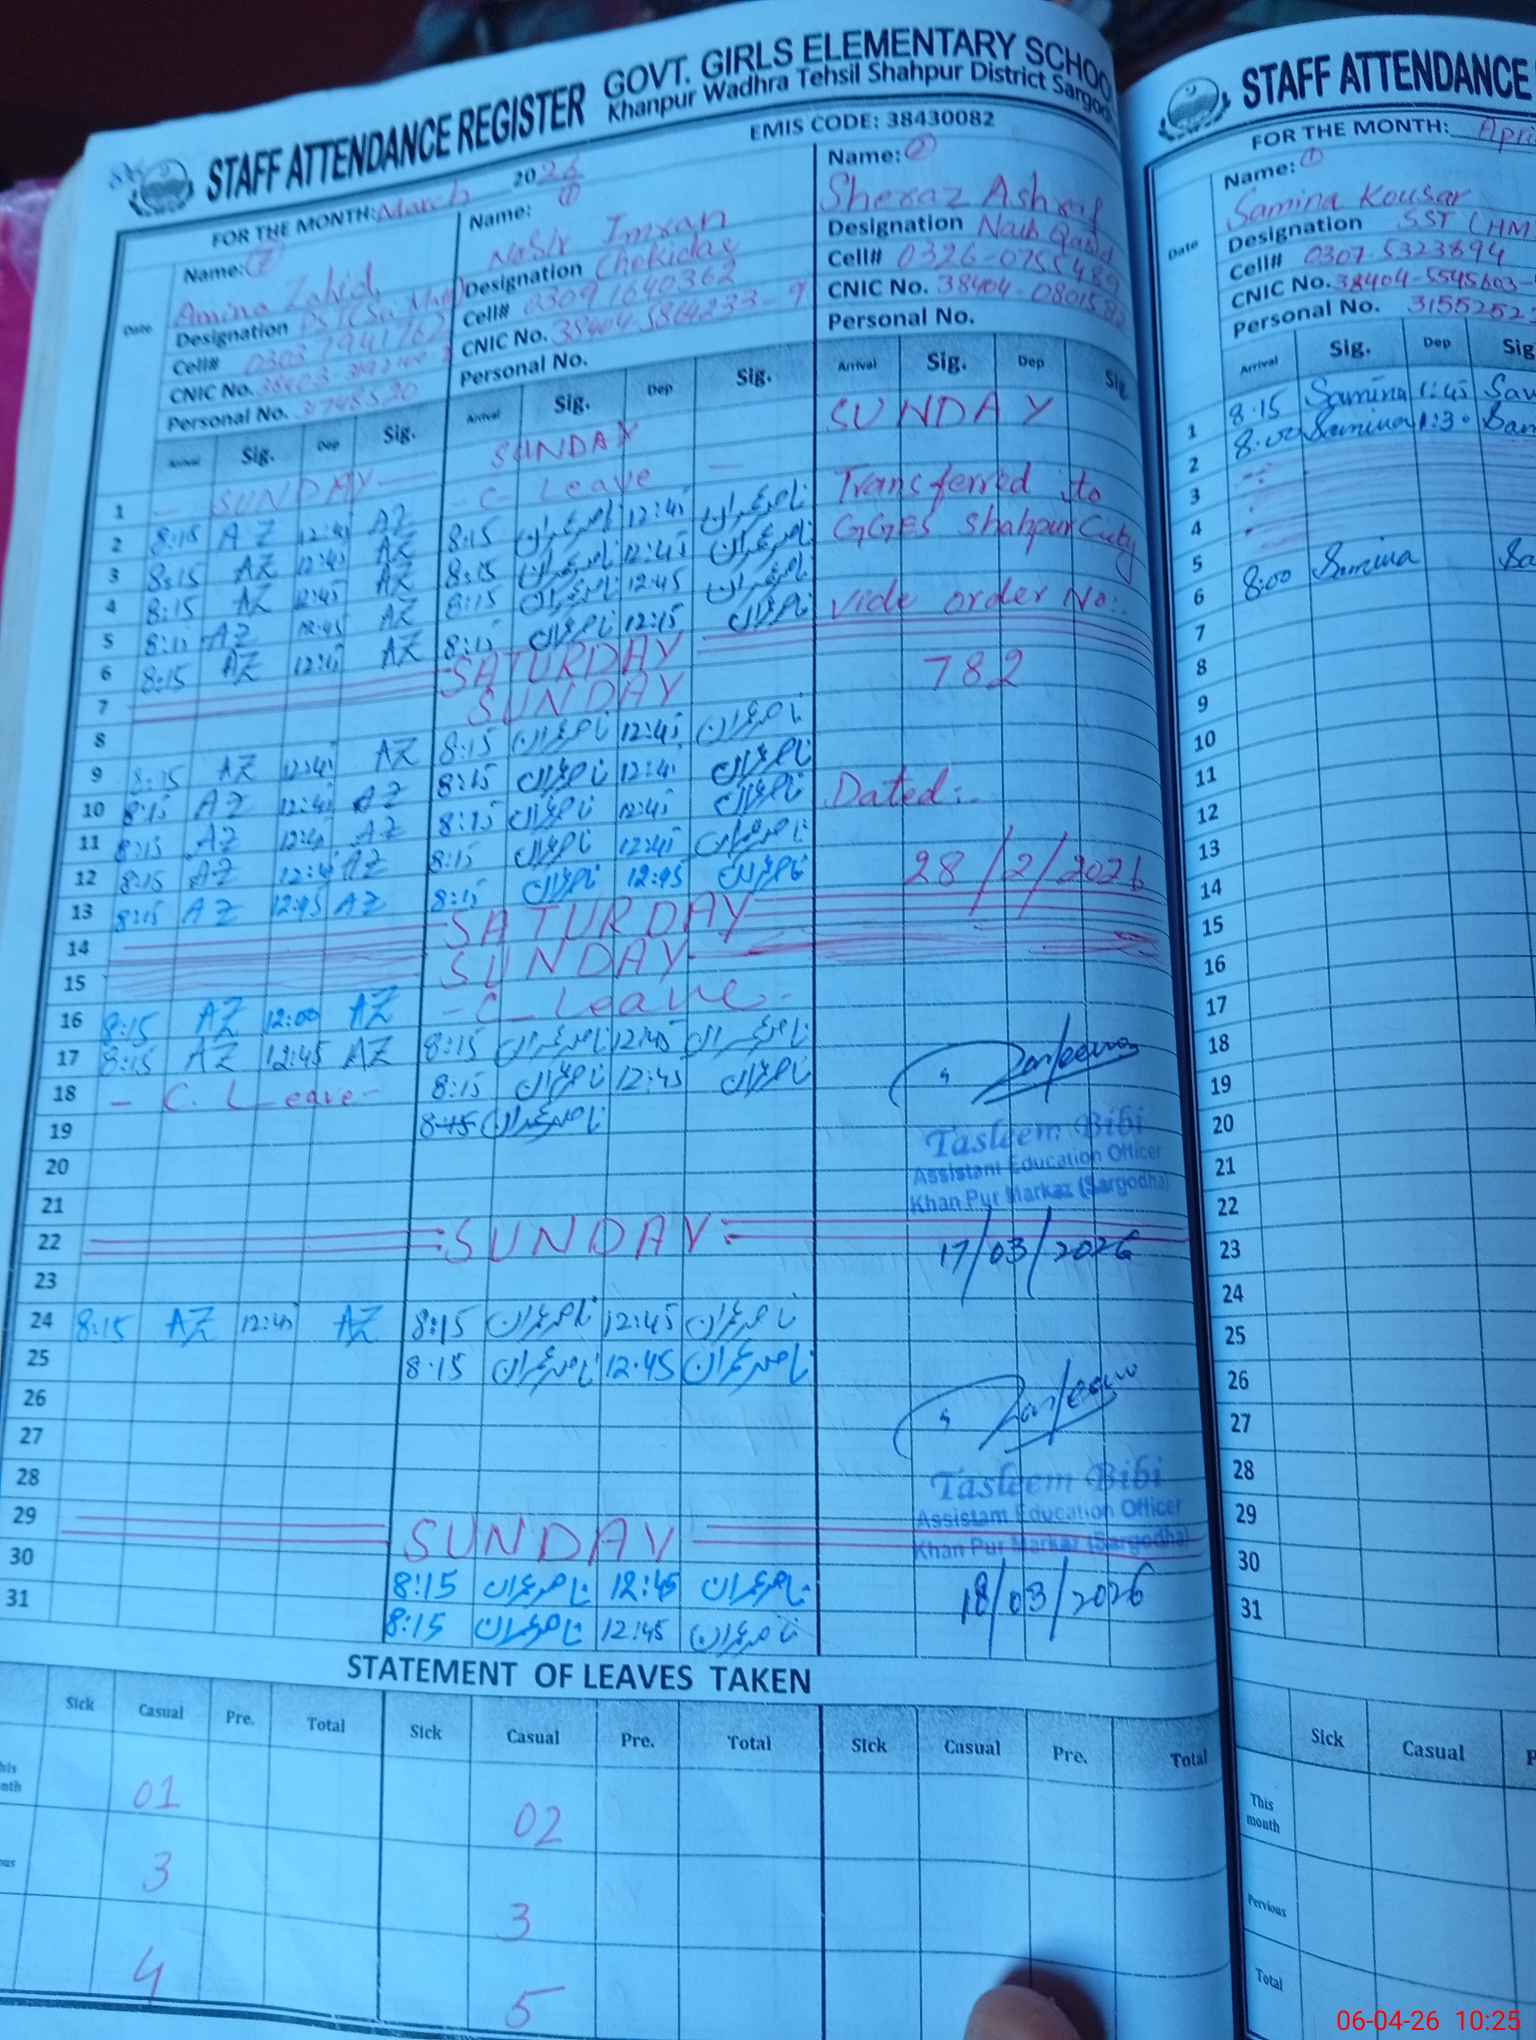 STAFF ATTENDANCE REGISTER GOVT. GIRLS ELEMENTARY SCHOO
Khanpur Wadhra Tehsil Shahpur District Sargo
EMIS CODE: 38430082
FOR THE MONTH: March 2026
Date
Name: 7
Amina Zahid
Designation
Cell#
CNIC No.
Personal No.
Name: 1
Nasir Imran
Designation Chokidar
Cell# 0309 1640362
CNIC No.
Personal No.
Name: 2
Sheraz Ashraf
Designation Naib Qasid
Cell# 0326-0755489
CNIC No. 38404-080158
Personal No.
Arrival Sig. Dep Sig. Arrival Sig. Dep Sig. Arrival Sig. Dep Sig
1 SUNDAY SUNDAY SUNDAY
2 8:15 AZ 12:45 AZ - C - Leave - Transferred to
3 8:15 AZ 12:45 AZ 8:15 ناصر عمران 12:45 ناصر عمران GGES Shahpur City
4 8:15 AZ 12:45 AZ 8:15 ناصر عمران 12:45 ناصر عمران
5 8:15 AZ 12:45 AZ 8:15 ناصر عمران 12:45 ناصر عمران Vide order No:.
6 8:15 AZ 12:45 AZ 8:15 ناصر عمران 12:15 ناصر عمران
7 SATURDAY 782
8 SUNDAY
9 8:15 AZ 12:45 AZ 8:15 ناصر عمران 12:45 ناصر عمران
10 8:15 AZ 12:45 AZ 8:15 ناصر عمران 12:45 ناصر عمران
11 8:15 AZ 12:45 AZ 8:15 ناصر عمران 12:45 ناصر عمران Dated:.
12 8:15 AZ 12:45 AZ 8:15 ناصر عمران 12:45 ناصر عمران
13 8:15 AZ 12:45 AZ 8:15 ناصر عمران 12:45 ناصر عمران 28/2/2026
14 SATURDAY
15 SUNDAY
16 8:15 AZ 12:00 AZ - C - Leave -
17 8:15 AZ 12:45 AZ 8:15 ناصر عمران 12:45 ناصر عمران
18 - C. Leave - 8:15 ناصر عمران 12:45 ناصر عمران
19 8:15 ناصر عمران
20
21
22 SUNDAY
23
24 8:15 AZ 12:45 AZ 8:15 ناصر عمران 12:45 ناصر عمران
25 8:15 ناصر عمران 12:45 ناصر عمران
26
27
28
29 SUNDAY
30 8:15 ناصر عمران 12:45 ناصر عمران
31 8:15 ناصر عمران 12:45 ناصر عمران
Tasleem Bibi
Assistant Education Officer
Khan Pur Markaz (Sargodha)
17/03/2026
Tasleem Bibi
Assistant Education Officer
Khan Pur Markaz (Sargodha)
18/03/2026
STATEMENT OF LEAVES TAKEN
Sick Casual Pre. Total Sick Casual Pre. Total Sick Casual Pre. Total
01 02
3 3
4 5
STAFF ATTENDANCE
FOR THE MONTH: Apri
Date
Name: 1
Samina Kousar
Designation SST (HM
Cell# 0307-5323894
CNIC No. 38404-5545603-
Personal No. 3155252
Arrival Sig. Dep Sig
1 8:15 Samina 1:45 Sa
2 8:00 Samina 1:30 Sam
3
4
5
6 8:00 Samina Sa
7
8
9
10
11
12
13
14
15
16
17
18
19
20
21
22
23
24
25
26
27
28
29
30
31
Sick Casual P
This month
Pervious
Total
06-04-26 10:25